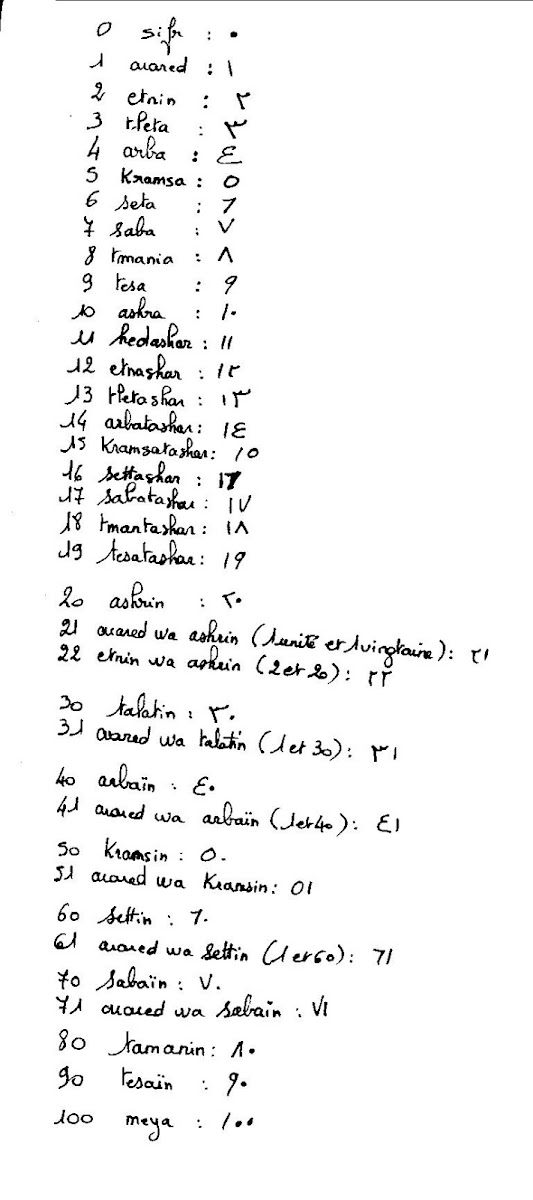 0 sifr : ٠
1 ouared : ١
2 etnin : ٢
3 tleta : ٣
4 arba : ٤
5 Kramsa : ٥
6 seta : ٦
7 saba : ٧
8 tmania : ٨
9 tesa : ٩
10 ashra : ١٠
11 hedashar : ١١
12 etnashar : ١٢
13 tletashar : ١٣
14 arbatashar : ١٤
15 Kramsatashar : ١٥
16 settashar : ١٦
17 sabatashar : ١٧
18 tmantashar : ١٨
19 tesatashar : ١٩
20 ashrin : ٢٠
21 ouared wa ashrin (1unité et 1vingtaine) : ٢١
22 etnin wa ashrin (2et 20) : ٢٢
30 talatin : ٣٠
31 ouared wa talatin (1et 30) : ٣١
40 arbaïn : ٤٠
41 ouared wa arbaïn (1et40) : ٤١
50 Kramsin : ٥٠
51 ouared wa Kramsin : ٥١
60 settin : ٦٠
61 ouared wa settin (1et60) : ٦١
70 sabaïn : ٧٠
71 ouared wa sabaïn : ٧١
80 tamanin : ٨٠
90 tesaïn : ٩٠
100 meya : ١٠٠